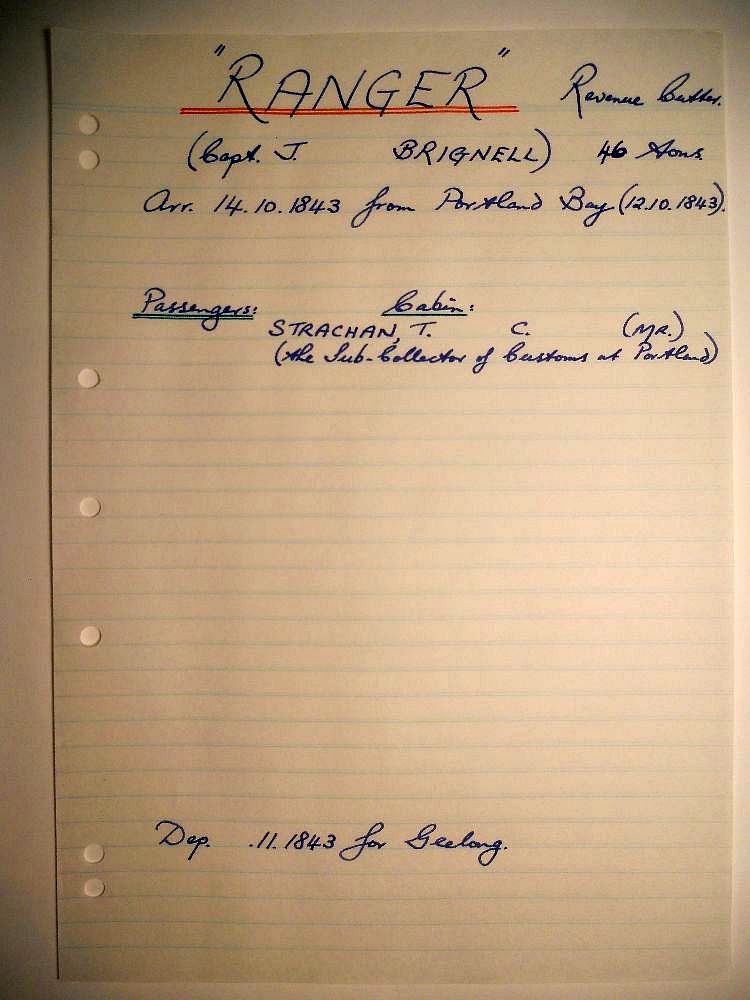 "RANGER" Revenue Cutter.
(Capt. J. BRIGNELL) 46 Tons.
Arr. 14.10.1843 from Portland Bay (12.10.1843).
Passengers: Cabin:
STRACHAN, T. C. (MR.)
(the Sub-Collector of Customs at Portland)
Dep. .11.1843 for Geelong.